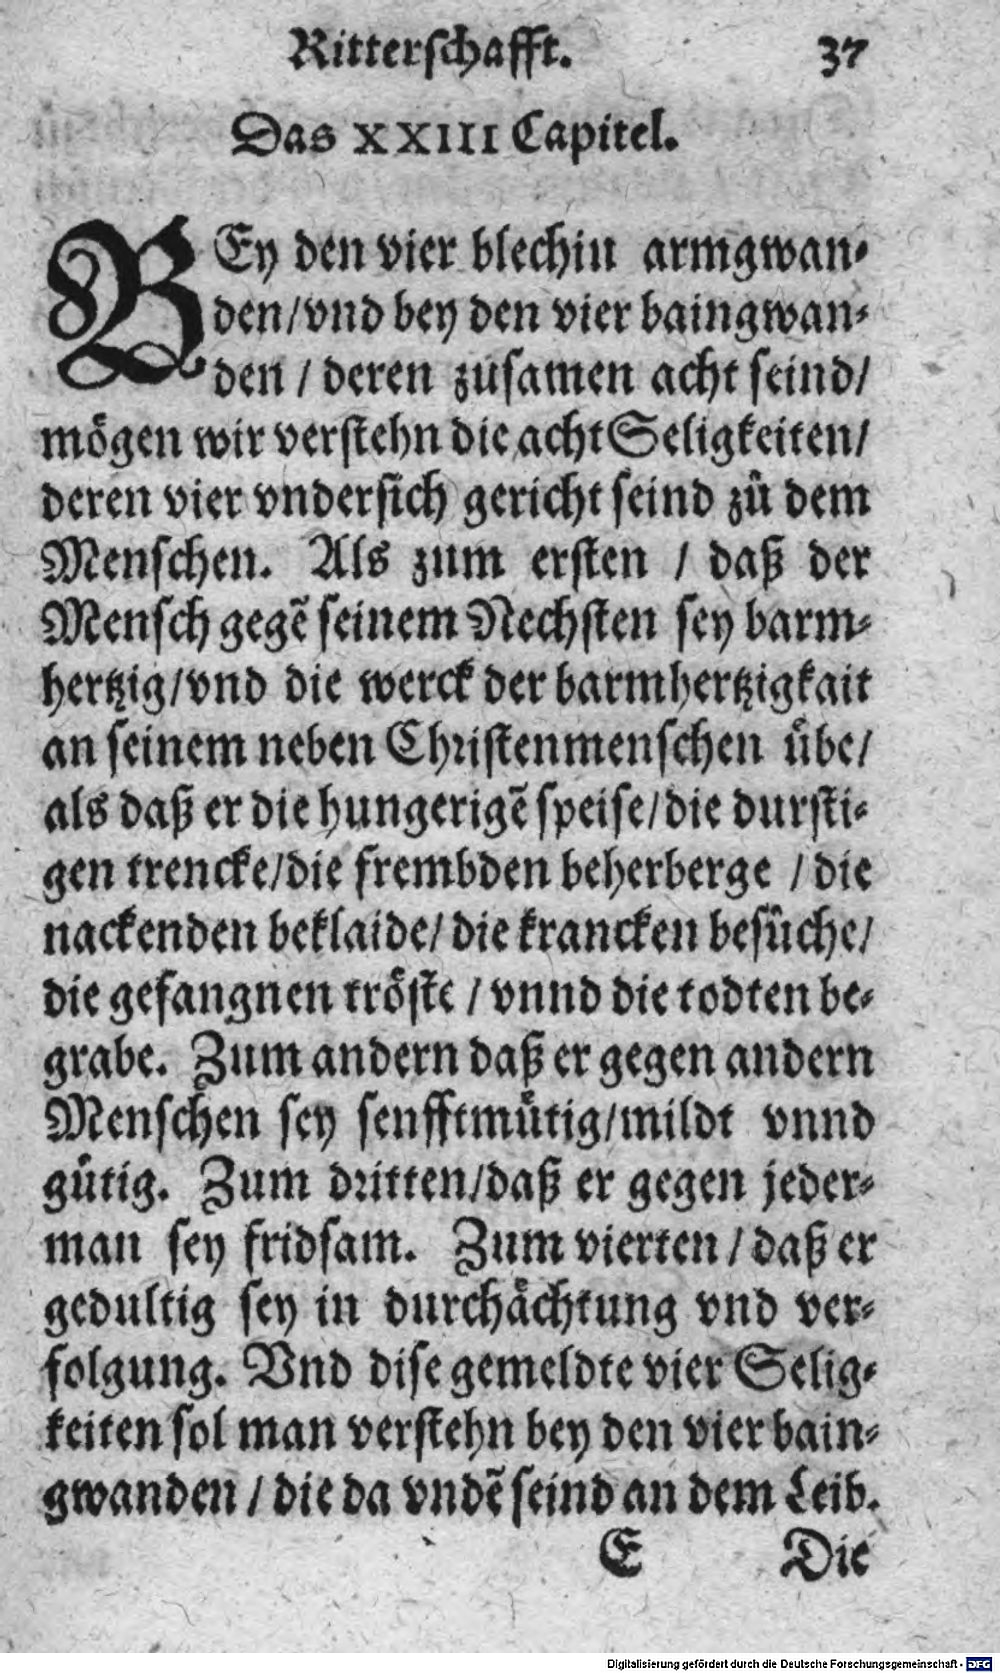 Ritterschafft. 37
Das XXIII Capitel.
BEy den vier blechin armgwan-
den/vnd bey den vier baingwan-
den / deren zusamen acht seind/
mögen wir verstehn die acht Seligkeiten/
deren vier vndersich gericht seind zů dem
Menschen. Als zum ersten / daß der
Mensch gegẽ seinem Nechsten sey barm-
hertzig/vnd die werck der barmhertzigkait
an seinem neben Christenmenschen übe/
als daß er die hungerigẽ speise/die dursti-
gen trencke/die frembden beherberge / die
nackenden beklaide/ die krancken besůche/
die gefangnen tröste / vnnd die todten be-
grabe. Zum andern daß er gegen andern
Menschen sey senfftmütig/mildt vnnd
gütig. Zum dritten/daß er gegen jeder-
man sey fridsam. Zum vierten / daß er
gedultig sey in durchächtung vnd ver-
folgung. Vnd dise gemeldte vier Selig-
keiten sol man verstehn bey den vier bain-
gwanden / die da vndẽ seind an dem Leib.
E Die
Digitalisierung gefördert durch die Deutsche Forschungsgemeinschaft - DFG